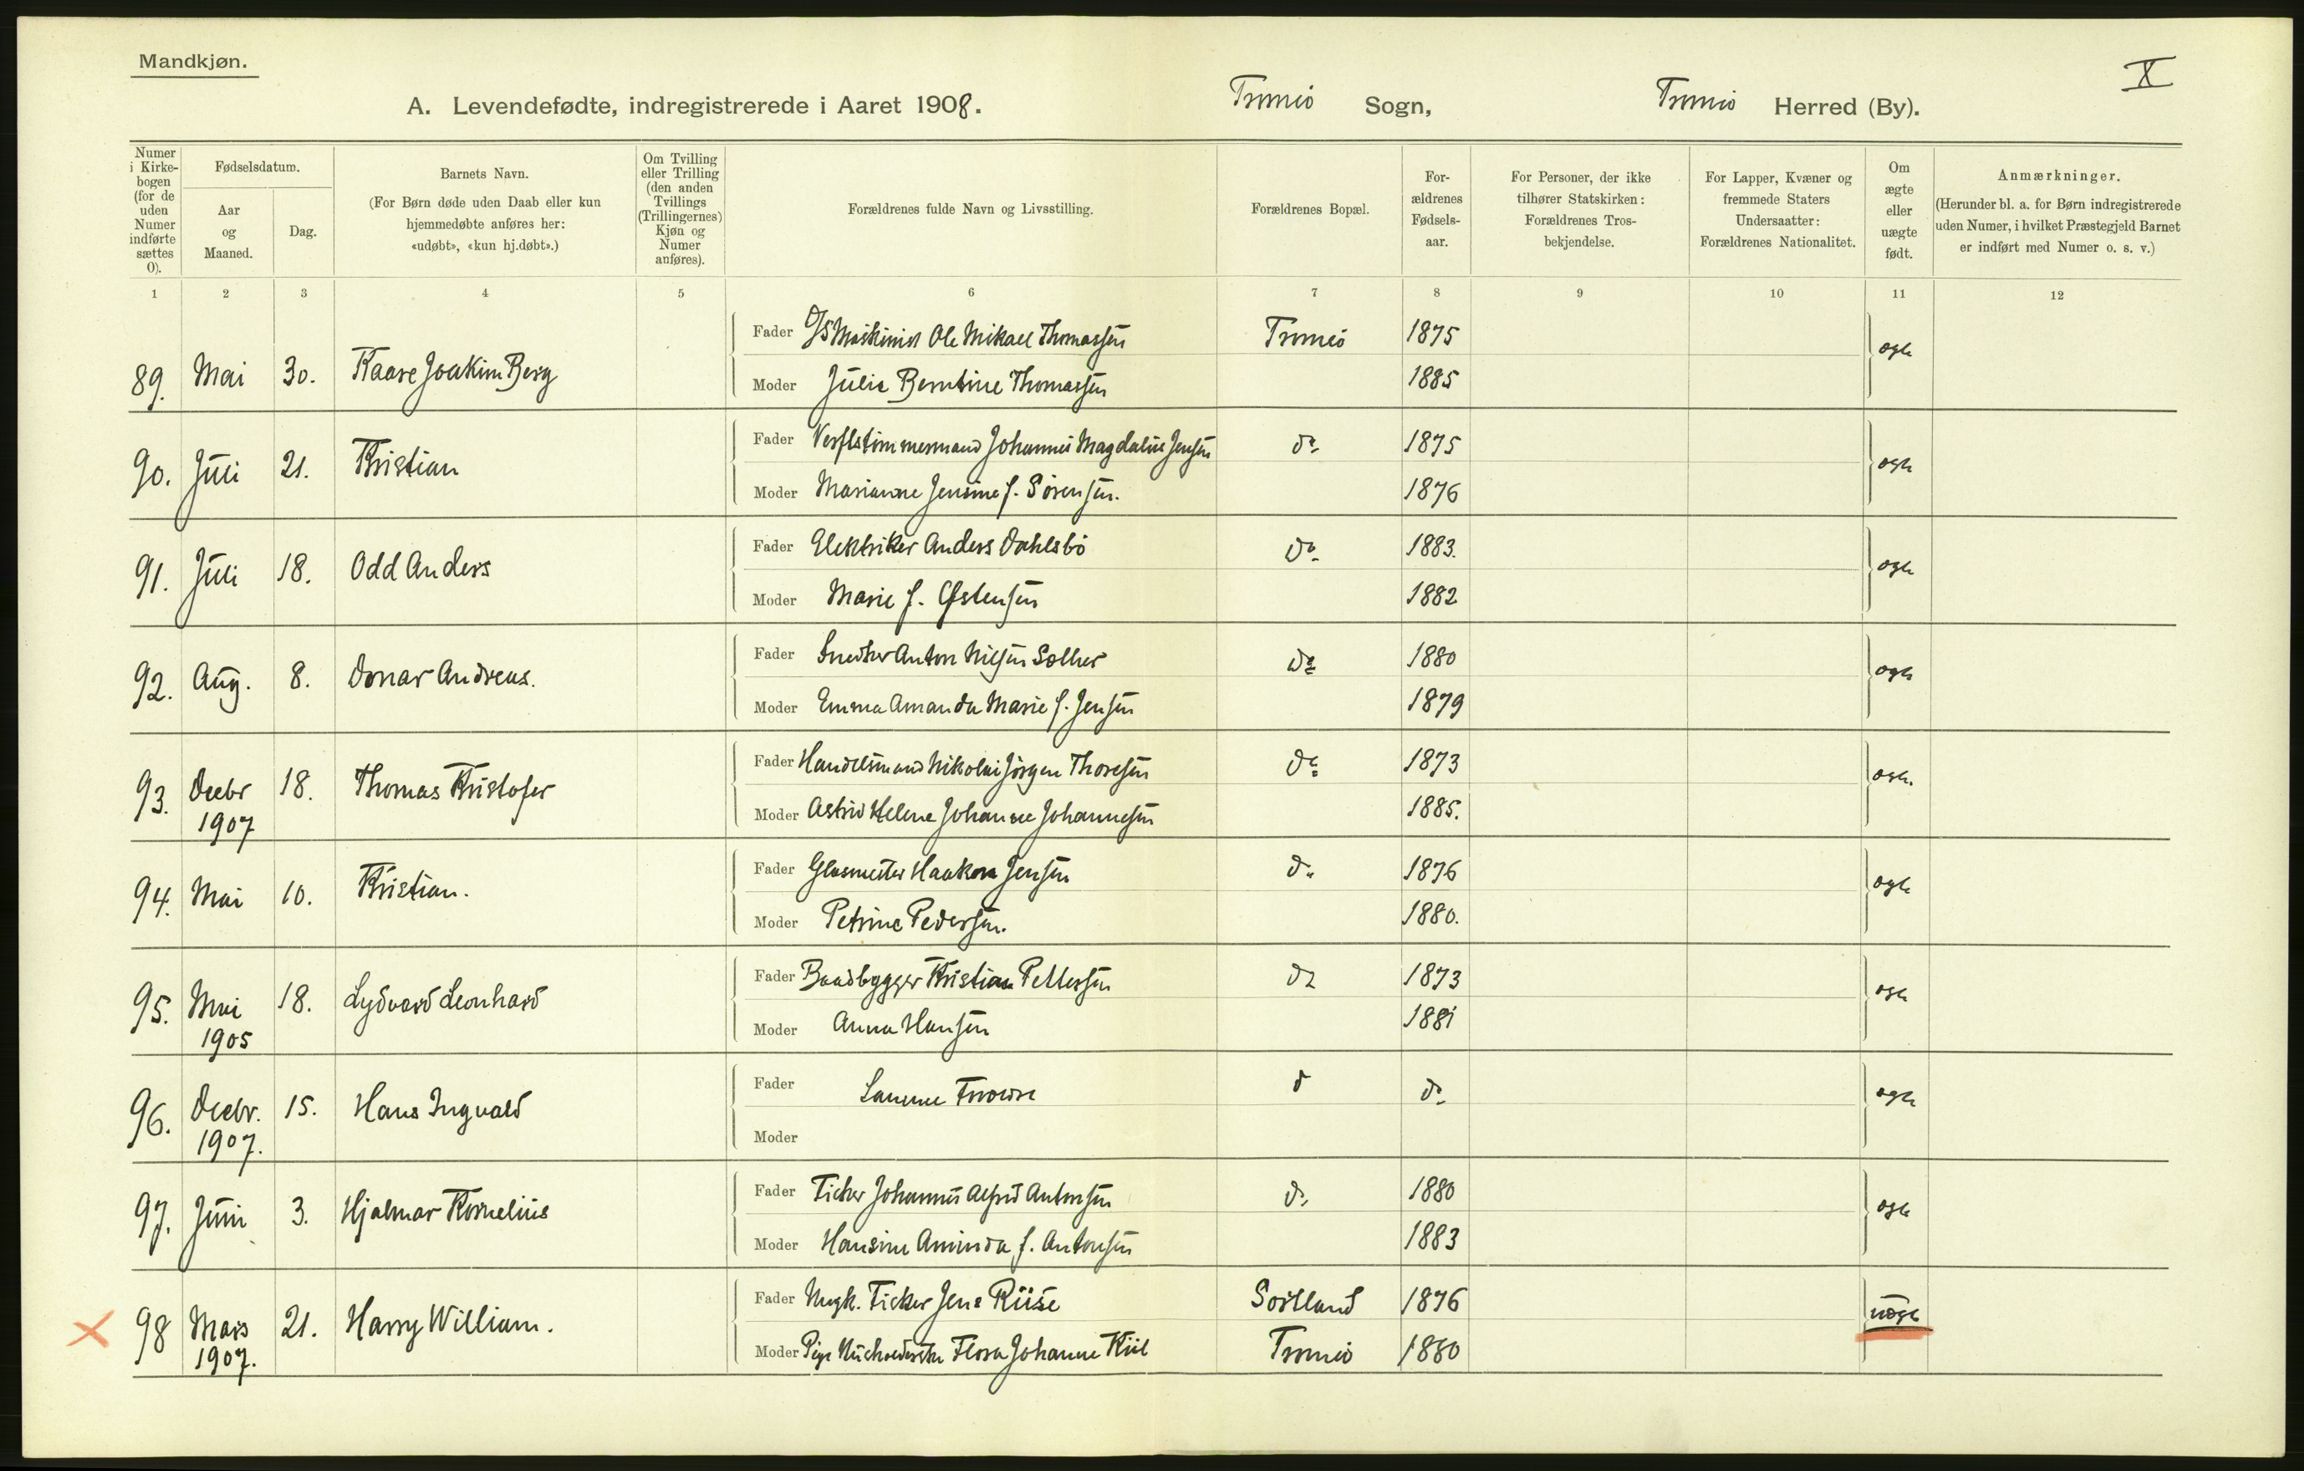 Mandkjøn.
X
A. Levendefødte, indregistrerede i Aaret 1908. Tromsö Sogn, Tromsö Herred (By).
Numer i Kirkebogen (for de uden Numer indførte sættes 0).
Fødselsdatum.
Aar og Maaned.
Dag.
Barnets Navn.
(For Børn døde uden Daab eller kun hjemmedøbte anføres her: «udøbt», «kun hj.døbt».)
Om Tvilling eller Trilling (den anden Tvillings (Trillingernes) Kjøn og Numer anføres).
Forældrenes fulde Navn og Livsstilling.
Forældrenes Bopæl.
Forældrenes Fødselsaar.
For Personer, der ikke tilhører Statskirken: Forældrenes Trosbekjendelse.
For Lapper, Kvæner og fremmede Staters Undersaatter: Forældrenes Nationalitet.
Om ægte eller uægte født.
Anmærkninger.
(Herunder bl. a. for Børn indregistrerede uden Numer, i hvilket Præstegjeld Barnet er indført med Numer o. s. v.)
1 2 3 4 5 6 7 8 9 10 11 12
89. Mai 30. Kaare Joakim Berg Fader D/S Maskinist Ole Mikael Thomassen Tromsö 1875 ægte
Moder Julie Berntine Thomassen 1885
90. Juli 21. Kristian Fader Verftstømmermand Johannes Magdalus Jensen do 1875 ægte
Moder Marianne Jensine f. Sörensen. 1876
91. Juli 18. Odd Anders Fader Elektriker Anders Dahlsbö do 1883. ægte
Moder Marie f. Østensen 1882
92. Aug. 8. Donar Andreas. Fader Snedker Anton Nilsen Sælher do 1880 ægte
Moder Emma Amanda Marie f. Jensen 1879
93. Decbr 1907 18. Thomas Kristofer Fader Handelsmand Nikolai Jörgen Thoresen do 1873 ægte.
Moder Astrid Helene Johanne Johannesen 1885.
94. Mai 10. Kristian. Fader Glasmester Haakon Jensen do 1876 ægte
Moder Petrine Pedersen. 1880.
95. Mai 1905 18. Lydvard Leonhard Fader Baadbygger Kristian Pettersen do 1873 ægte
Moder Anna Hansen 1881
96. Decbr. 1907. 15. Hans Ingvald Fader Samme Forældre do do ægte
Moder
97. Juni 3. Hjalmar Kornelius Fader Fisker Johannes Alfred Antonsen do 1880 ægte
Moder Hansine Aminda f. Antonsen 1883
98 Mars 1907. 21. Harry William. Fader Ungk. Fisker Jens Riise Sortland 1876 uægte
Moder Pige Husholderske Flora Johanne Kiil Tromsö 1880